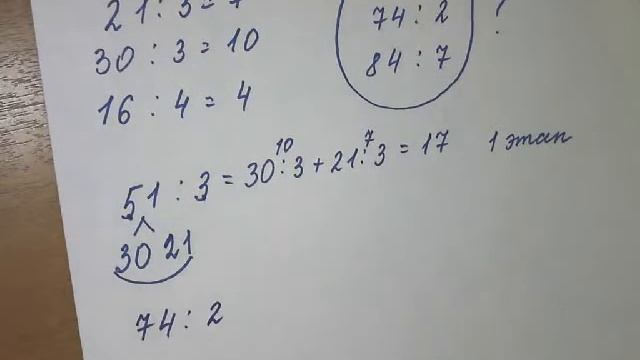 21 : 3 = 7
30 : 3 = 10
16 : 4 = 4
74 : 2
84 : 7
!
10 7
51 : 3 = 30 : 3 + 21 : 3 = 17 1 этап
30 21
74 : 2